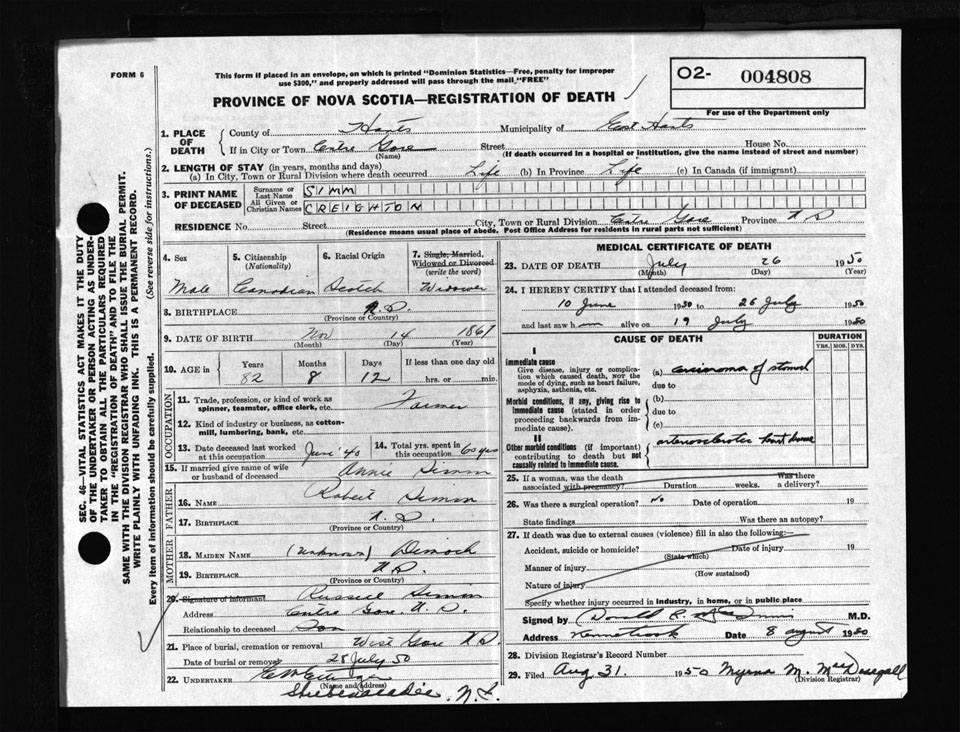 FORM 6
This form if placed in an envelope, on which is printed "Dominion Statistics—Free, penalty for improper
use $300," and properly addressed will pass through the mail "FREE"
O2- 004808
PROVINCE OF NOVA SCOTIA—REGISTRATION OF DEATH
For use of the Department only
1. PLACE OF DEATH
County of Hants Municipality of East Hants
If in City or Town Centre Gore Street House No.
(Name) (If death occurred in a hospital or institution, give the name instead of street and number)
2. LENGTH OF STAY (in years, months and days)
(a) In City, Town or Rural Division where death occurred Life (b) In Province Life (c) In Canada (if immigrant)
3. PRINT NAME OF DECEASED
Surname or Last Name SIMM
All Given or Christian Names CREIGHTON
RESIDENCE No. Street City, Town or Rural Division Centre Gore Province N.S.
(Residence means usual place of abode. Post Office Address for residents in rural parts not sufficient)
4. Sex
Male
5. Citizenship
(Nationality)
Canadian
6. Racial Origin
Scotch
7. Single, Married,
Widowed or Divorced
(write the word)
Widower
8. BIRTHPLACE N.S.
(Province or Country)
9. DATE OF BIRTH Nov 14 1867
(Month) (Day) (Year)
10. AGE in Years Months Days If less than one day old
82 8 12 hrs. or min.
OCCUPATION
11. Trade, profession, or kind of work as
spinner, teamster, office clerk, etc. Farmer
12. Kind of industry or business, as cotton-
mill, lumbering, bank, etc.
13. Date deceased last worked
at this occupation June '40
14. Total yrs. spent in
this occupation 60 yrs
15. If married give name of wife
or husband of deceased Annie Simm
FATHER
16. NAME Robert Simm
17. BIRTHPLACE N.S.
(Province or Country)
MOTHER
18. MAIDEN NAME (Unknown) Dimock
19. BIRTHPLACE N.S.
(Province or Country)
20. Signature of informant Russell Simm
Address Centre Gore, N.S.
Relationship to deceased Son
21. Place of burial, cremation or removal West Gore N.S.
Date of burial or removal 28 July 50
22. UNDERTAKER
(Name and address)
Shubenacadie, N.S.
MEDICAL CERTIFICATE OF DEATH
23. DATE OF DEATH July 26 1950
(Month) (Day) (Year)
24. I HEREBY CERTIFY that I attended deceased from:
10 June 1950 to 26 July 1950
and last saw him alive on 19 July 1950
CAUSE OF DEATH
DURATION
YRS. MOS. DYS.
I
Immediate cause
Give disease, injury or complica-
tion which caused death, NOT the
mode of dying, such as heart failure,
asphyxia, asthenia, etc.
(a) carcinoma of stomach
due to
Morbid conditions, if any, giving rise to
immediate cause (stated in order
proceeding backwards from im-
mediate cause).
(b)
due to
(c)
II
Other morbid conditions (if important)
contributing to death but not
causally related to immediate cause.
arteriosclerotic heart disease
25. If a woman, was the death
associated with pregnancy? Duration weeks. Was there a delivery?
26. Was there a surgical operation? No Date of operation 19
State findings Was there an autopsy?
27. If death was due to external causes (violence) fill in also the following:
Accident, suicide or homicide? Date of injury 19
(State which)
Manner of injury
(How sustained)
Nature of injury
Specify whether injury occurred in Industry, in home, or in public place
Signed by Donald M.D.
Address Date 8 August 1950
28. Division Registrar's Record Number
29. Filed Aug 31 1950 Myrna M. MacDougall
(Division Registrar)
SEC. 46—VITAL STATISTICS ACT MAKES IT THE DUTY
OF THE UNDERTAKER OR PERSON ACTING AS UNDER-
TAKER TO OBTAIN ALL THE PARTICULARS REQUIRED
IN THE "REGISTRATION OF DEATH" AND TO FILE THE
SAME WITH THE DIVISION REGISTRAR WHO SHALL ISSUE THE BURIAL PERMIT.
WRITE PLAINLY WITH UNFADING INK. THIS IS A PERMANENT RECORD.
Every item of information should be carefully supplied. (See reverse side for instructions.)